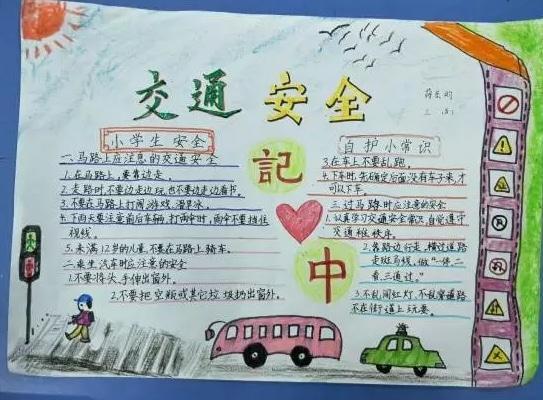 交通安全
小学生安全
一、马路上应注意的交通安全
1.在马路上,要靠边走.
2.走路时,不要边走边玩,也不要边走边看书.
3.不要在马路上打闹,游戏,溜旱冰.
4.下雨天要注意前后车辆,打雨伞时,雨伞不要挡住
视线.
5.未满12岁的儿童,不要在马路上骑车.
二.乘坐汽车时应注意的安全
1.不要将头,手伸出窗外.
2.不要把空瓶或其它垃圾扔出窗外.
記
中
自护小常识
3.在车上不要乱跑.
4.下车时,先确定后面没有车子来,才
可以下车.
三.过马路时应注意的安全
1.认真学习交通安全常识,自觉遵守
交通秩序.
2.靠路边行走,横过道路
走斑马线,做"一停二
看三通过."
3.不乱闯红灯,不乱穿道路
不在街道上玩耍.